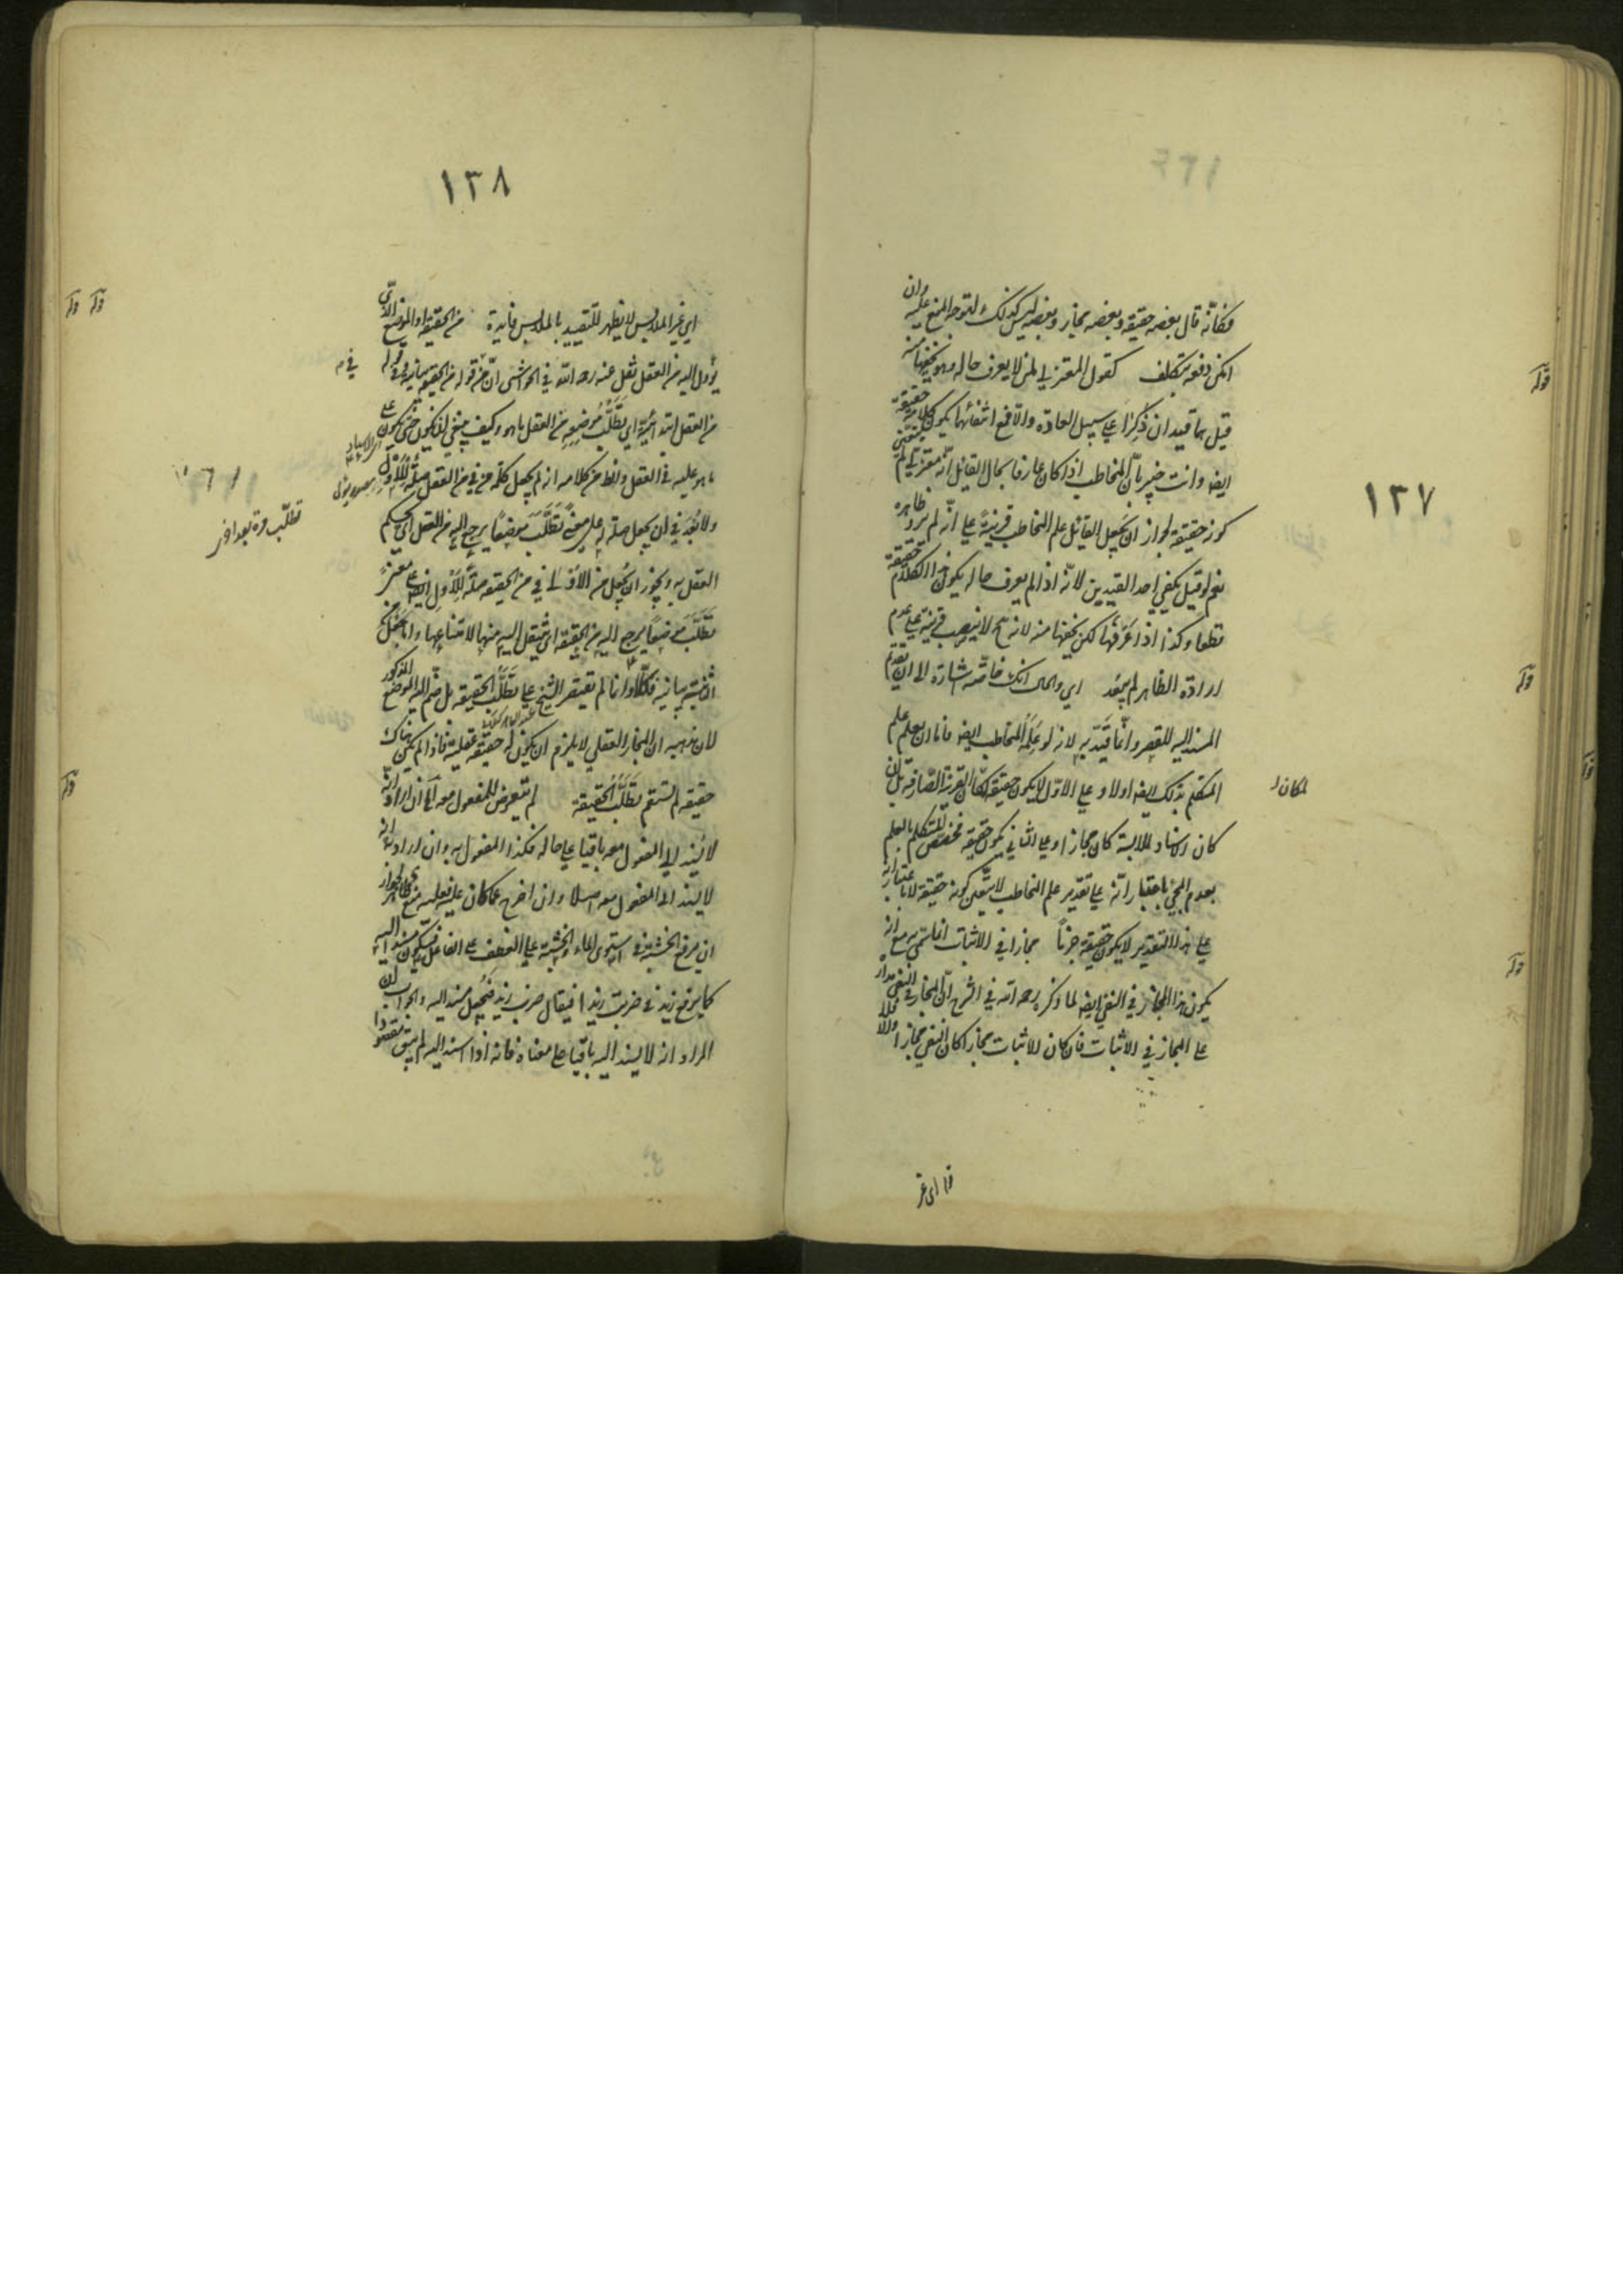 ١٣٧
فكانّه قال بعضه حقيقة وبعضه مجاز وبعضه ليس كذلك لتوجه المنع عليه وان
امكن دفعه بتكلف كقول المعتزلي لمن لا يعرف حاله وهو يخفيها منه
قيل هما قيدان ذُكِرَا على سبيل العادة والا فمع انتفائهما يكون كلامه حقيقة
ايضا وانت خبير بانّ المخاطب اذا كان عارفا بحال القايل انّه معتزلي لم يتعيّن
كونه حقيقة لجواز ان يجعل القايل علم المخاطب قرينةً على انّه لم يرد ظاهره
نعم لو قيل يكفي احد القيدين لانّه اذا لم يعرف حاله يكون هذا الكلام حقيقة
قطعا وكذا اذا عرفها لكن يخفيها منه لانه ح لا ينصب قرينة على عدم
ارادة الظاهر لم يبعد اي والحال انك خاصّة اشارة الى ان تقديم
المسند اليه للقصر وانّما قيّد به لانه لو عَلِمَه المخاطب ايضا فاما ان يعلم علم
المتكلم بذلك ايضا اولا وعلى الاوّل لا يكون حقيقة لمكان القرينة الصّارفة بل ان
لمكان
كان الاسناد للملابسة كان مجازا وعلى الثاني يكون حقيقة فتخصيص المتكلم بالعلم
بعدم المجئ باعتبار انّه على تقدير علم المخاطب لا يتعين كونه حقيقة لا باعتبار انه
على هذا التقدير لا يكون حقيقة جزمًا مجازا في الاثبات انما سمّي به مع انه
يكون هذا المجاز في النفي ايضا لما ذكره رحمه الله في الشرح انّ المجاز في النفي مداره
على المجاز في الاثبات فان كان الاثبات مجازا كان النفي مجازا والا فلا
قوله
قوله
قوله
اي غير
١٣٨
اي غير الملابس لا يظهر للتقييد بالملابس فايدة من الحقيقة او الموضع الذي
يؤول اليه من العقل نقل عنه رحمه الله في الحواشى انّ من في قوله من الحقيقة بيانية وفي قوله
من العقل ابتدائية اي تطلّب موضعه من العقل ما هو وكيف ينبغي ان يكون حتى يكون على
ما هو عليه في العقل والظ من كلامه انه لم يجعل كلمة من في من العقل صلةً للاول
ولا بُعد في ان يجعل صلة له على معنى تطلّب موضعًا يرجع اليه من العقل اي يحكم
العقل به ويجوز ان يجعل من الاولى في من الحقيقة صلةً للاول ايضا على معنى
تطلّب موضعًا يرجع اليه من الحقيقة اي ينتقل اليه منها لامتناعها واما جعل
الثانية بيانية فكلّا وانما لم يقتصر الشيخ على تطلّب الحقيقة بل ضم اليه الموضع المذكور
لان مذهبه ان المجاز العقلي لا يلزم ان يكون له حقيقة عقلية فاذا لم يكن هناك
حقيقة لم يستقم تطلّب الحقيقة لم يتعرض للمفعول معه الى ان اراد انه
لا يُسند الى المفعول معه باقيا على حاله فكذا المفعول به وان اراد انه
لا يسند الى المفعول معه اصلا وان اخرج عما كان عليه فعليه منع ظاهر لجواز
ان يرفع الخشبة في استوى الماء والخشبة على العطف على الفاعل فيكون مسندا اليه
كما يرفع زيد في ضربت زيدا فيقال ضرب زيد فيُجعل مسندا اليه والجواب ان
المراد انه لا يسند اليه باقيا على معناه فانه اذا اسند اليه لم يبق مقصودا
تطلّب مرة بعد اخرى
قوله قوله
قوله